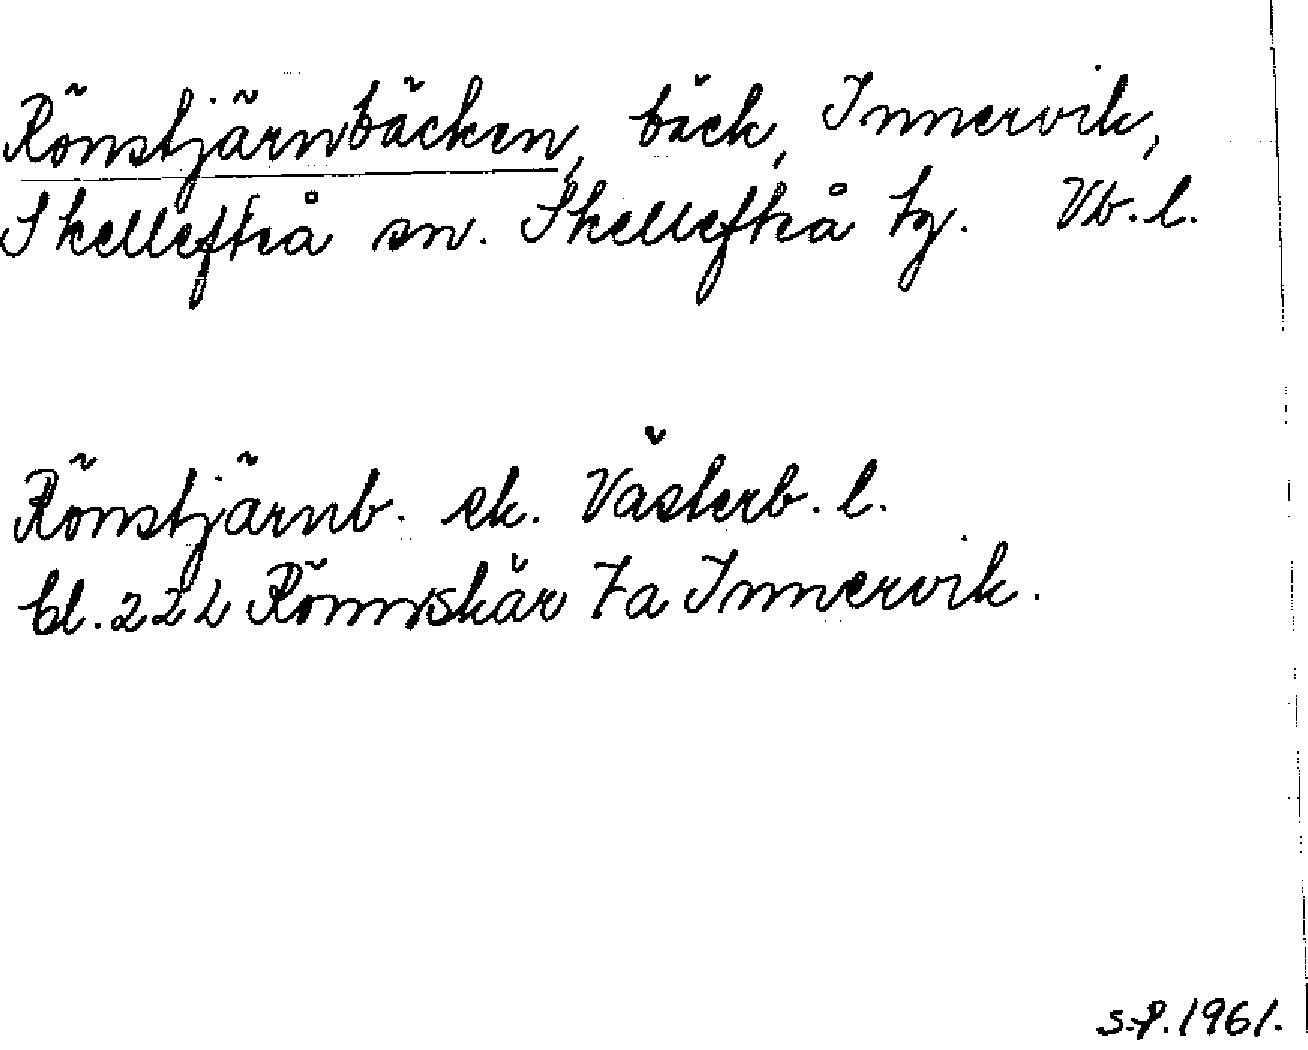 Rönstjärnbäcken, bäck, Innervik,
Skellefteå sn. Skellefteå tg. Vb. l.
Rönstjärnb. ek. Västerb. l.
bl. 222 Rönnskär 7a Innervik.
S.P. 1961.